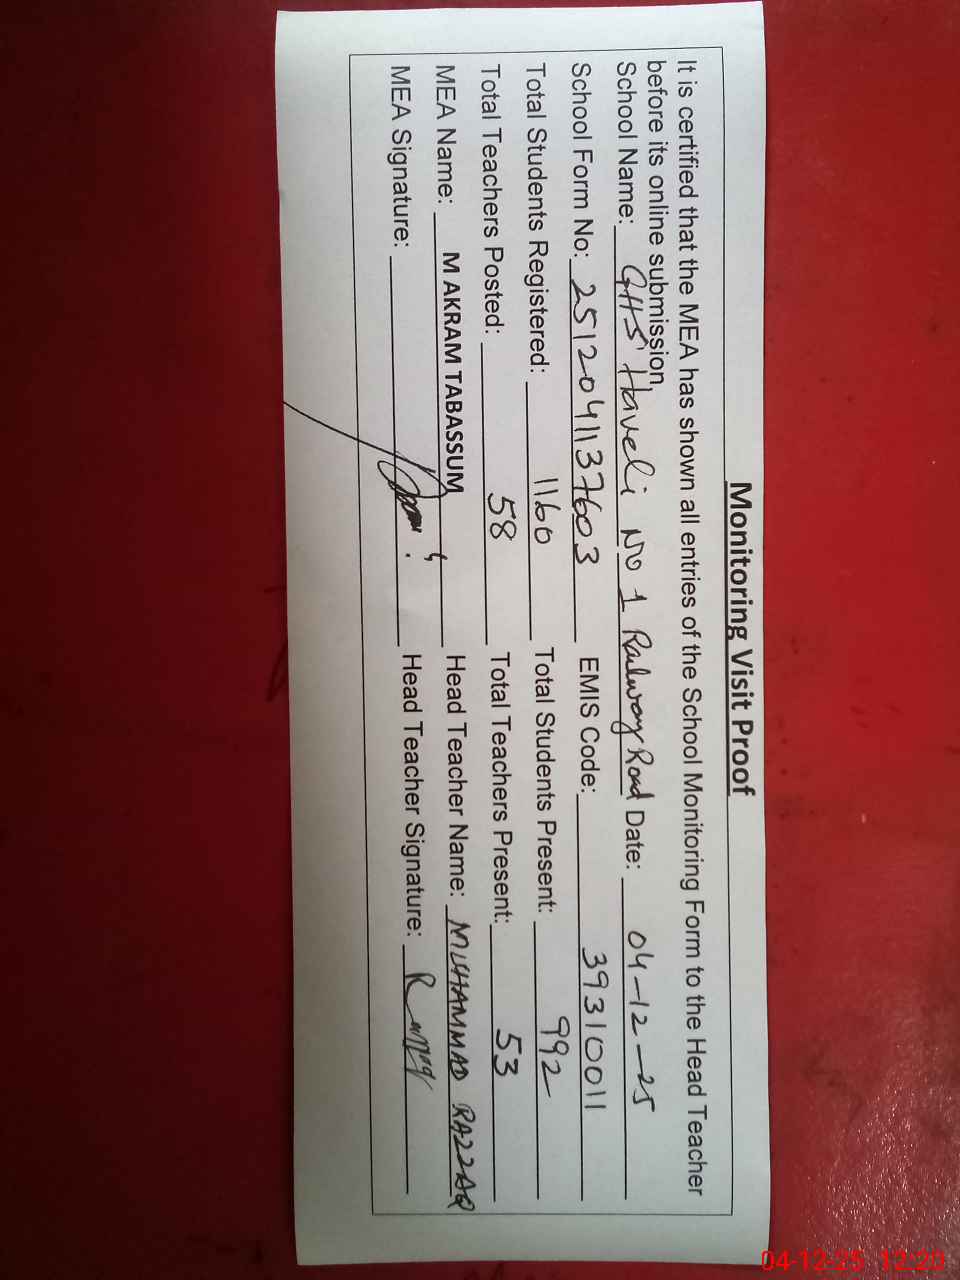 Monitoring Visit Proof
It is certified that the MEA has shown all entries of the School Monitoring Form to the Head Teacher
before its online submission.
School Name: GHS Haveli No 1 Railway Road Date: 04-12-25
School Form No: 2512041137603 EMIS Code: 39310011
Total Students Registered: 1160 Total Students Present: 992
Total Teachers Posted: 58 Total Teachers Present: 53
MEA Name: M AKRAM TABASSUM Head Teacher Name: MUHAMMAD RAZZAQ
MEA Signature: Head Teacher Signature:
04-12-25 12:20